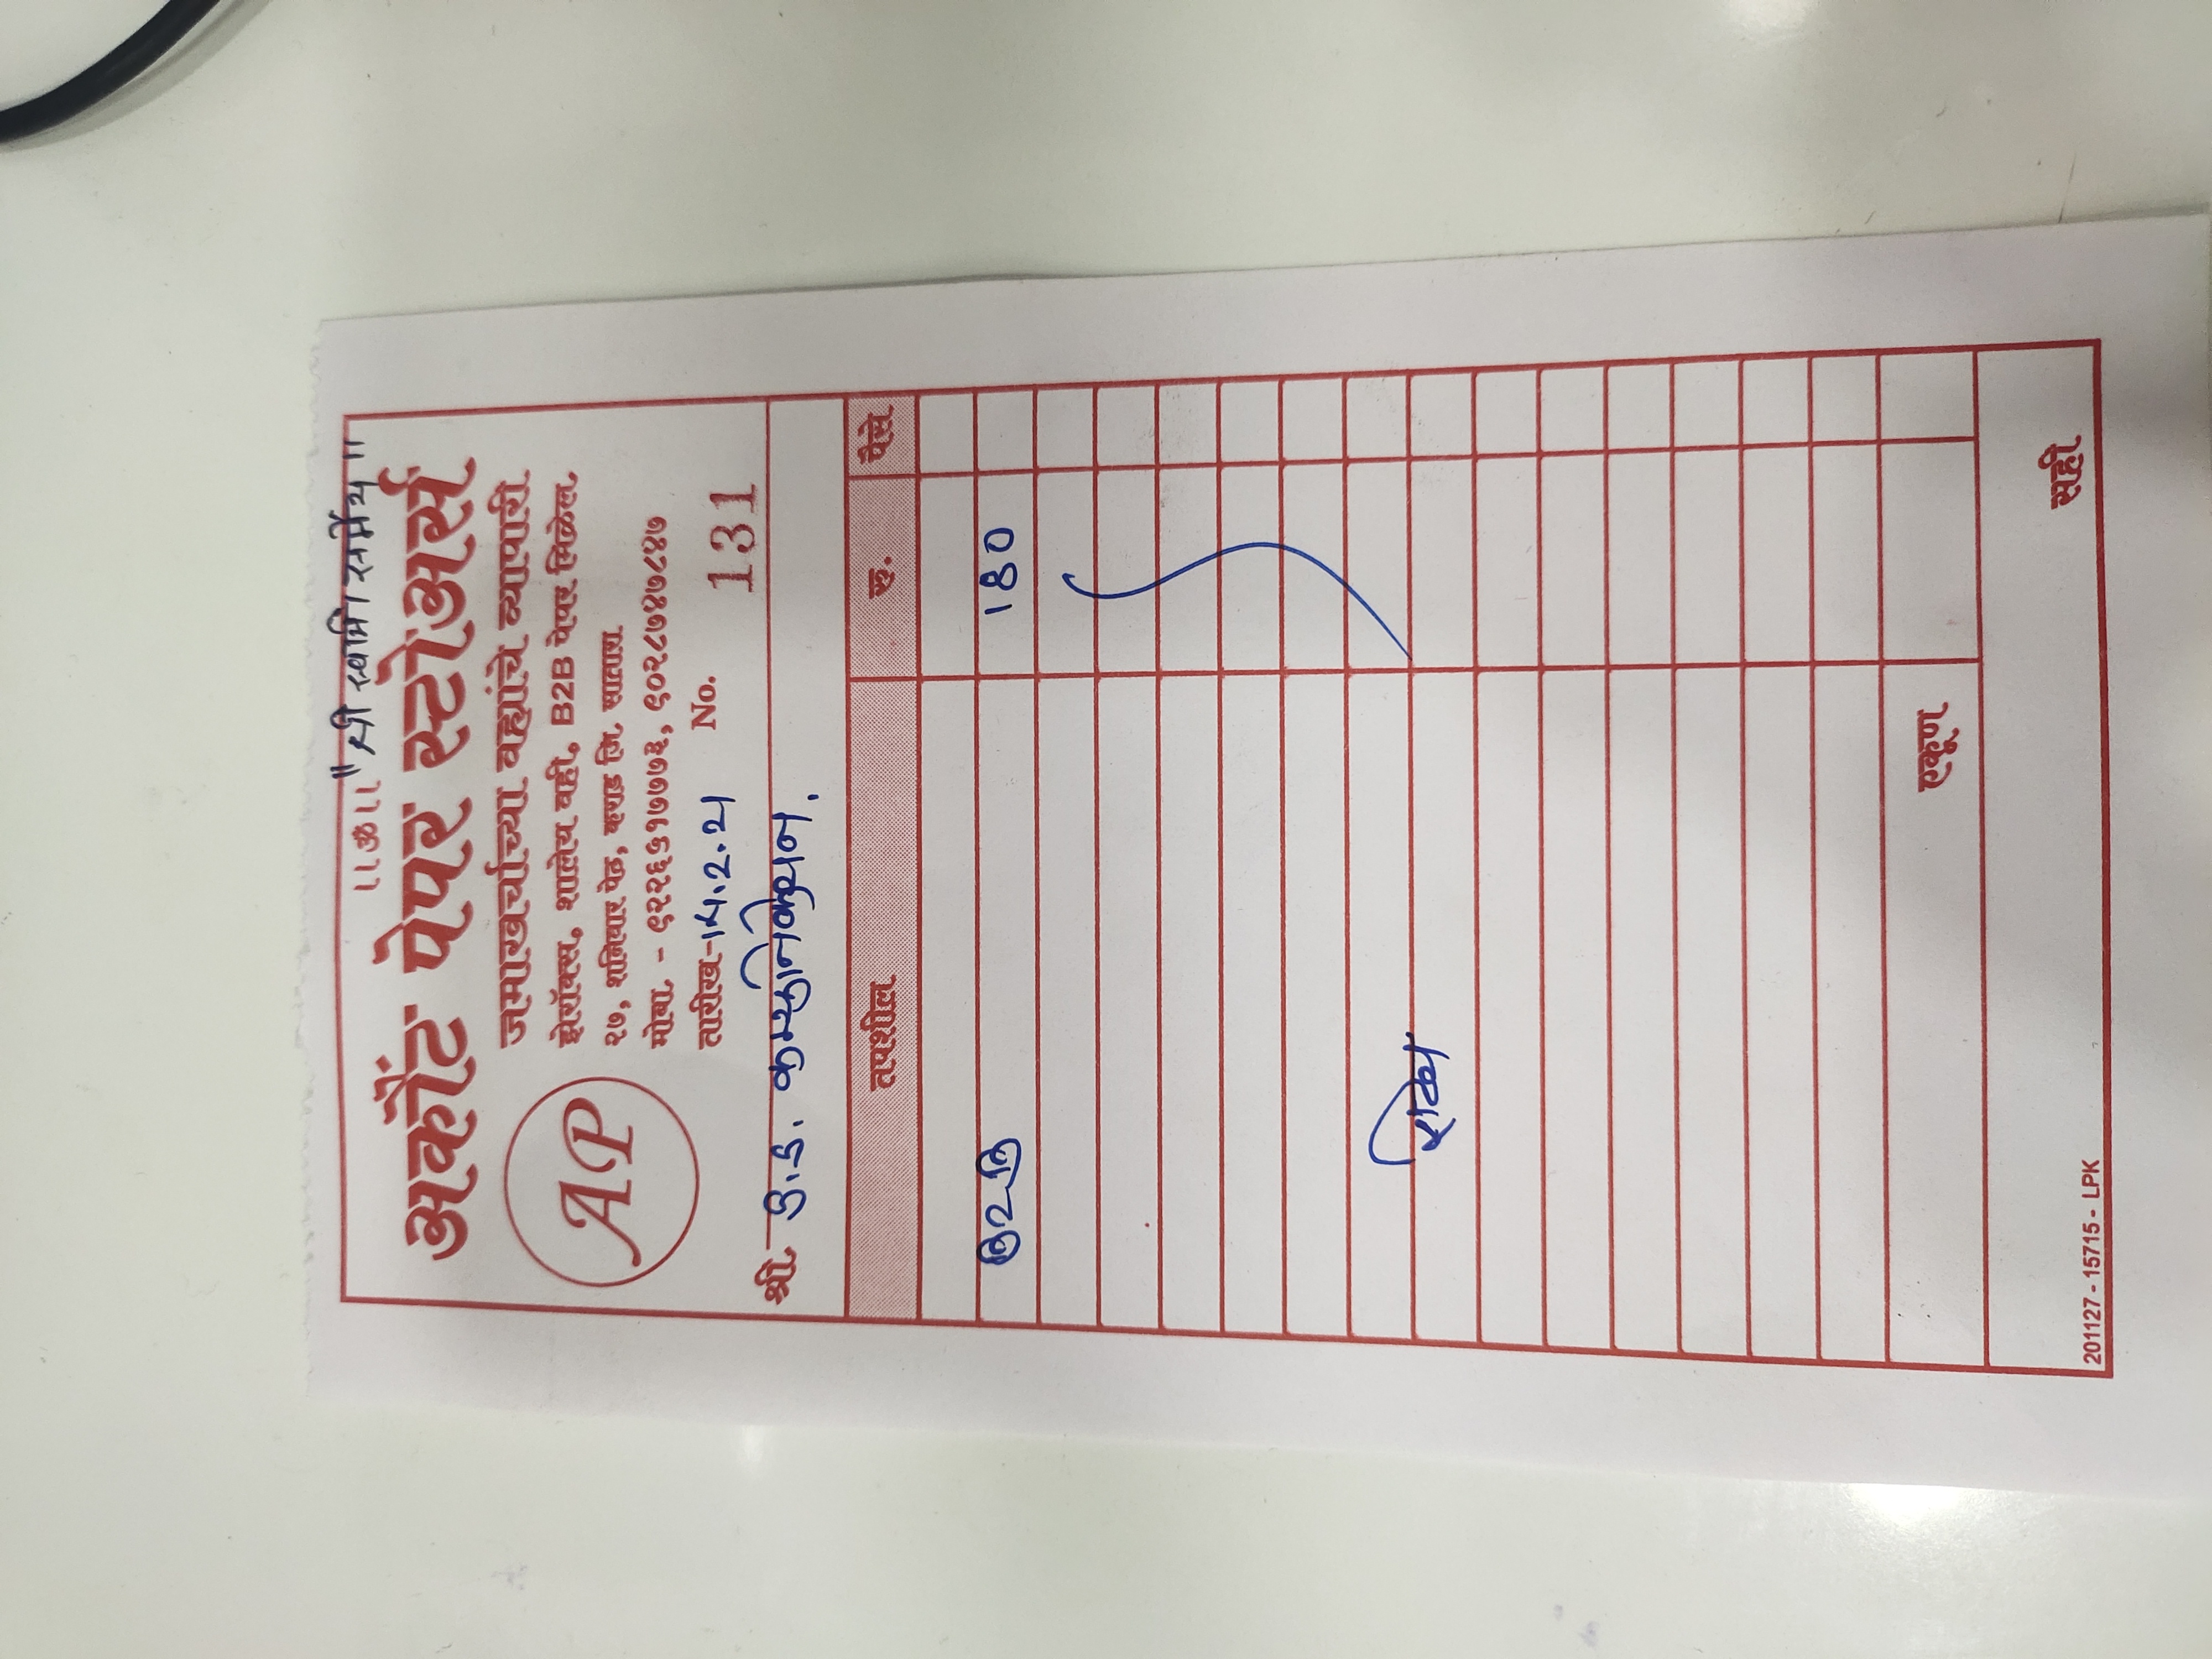 ।।ॐ।। "श्री स्वामी समर्थ"
अकौंट पेपर स्टोअर्स
AP
जमाखर्चाच्या वह्यांचे व्यापारी
झेरॉक्स, शालेय वही, B2B पेपर मिळेल.
२७, शनिवार पेठ, कराड जि. सातारा
मोबा. - ९२२६५१७७७३, ९०२८७४७८४७
तारीख- No. 131
श्री. कम्युनिकेशन.
तपशील रु. पैसे
B2B 180
एकूण
सही
201127 - 15715 - LPK